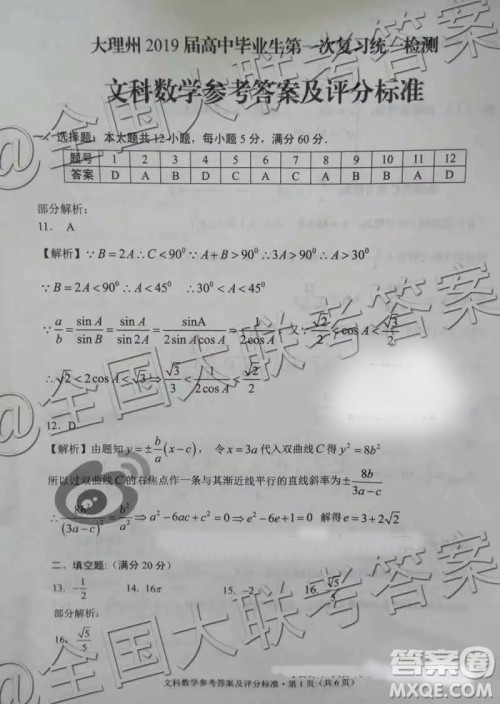 大理州 2019 届高中毕业生第一次复习统一检测
文科数学参考答案及评分标准
一、选择题:本大题共12小题,每小题5分,满分60分.
题号 1 2 3 4 5 6 7 8 9 10 11 12
答案 D A B D C A C A B B A D
部分解析:
11. A
【解析】∵B=2A∴C<90⁰ ∵A+B>90⁰ ∴3A>90⁰ ∴A>30⁰
∵B=2A<90⁰ ∴A<45⁰ ∴30⁰<A<45⁰
∵a/b=sin A/sin B=sin A/sin 2A=sinA/2sin A cos A=1/2cos A 又∵√2/2<cos A<√3/2
∴√2<2cos A<√3⇒√3/3<1/2cos A<√2/2
12. D
【解析】由题知 y=±b/a(x-c), 令x=3a代入双曲线C得y²=8b²
所以过双曲线C的右焦点作一条与其渐近线平行的直线斜率为±8b/3a-c
∴8b²/(3a-c)²=b²/a²⇒a²-6ac+c²=0⇒e²-6e+1=0 解得e=3+2√2
二、填空题:(满分20分)
13. -1/2 14. 16π 15. 16. -√5/5
部分解析:
16. -√5/5
文科数学参考答案及评分标准·第1页(共6页)
@全国大联考答案
@全国大联考答案
答案圈
MXQE.COM